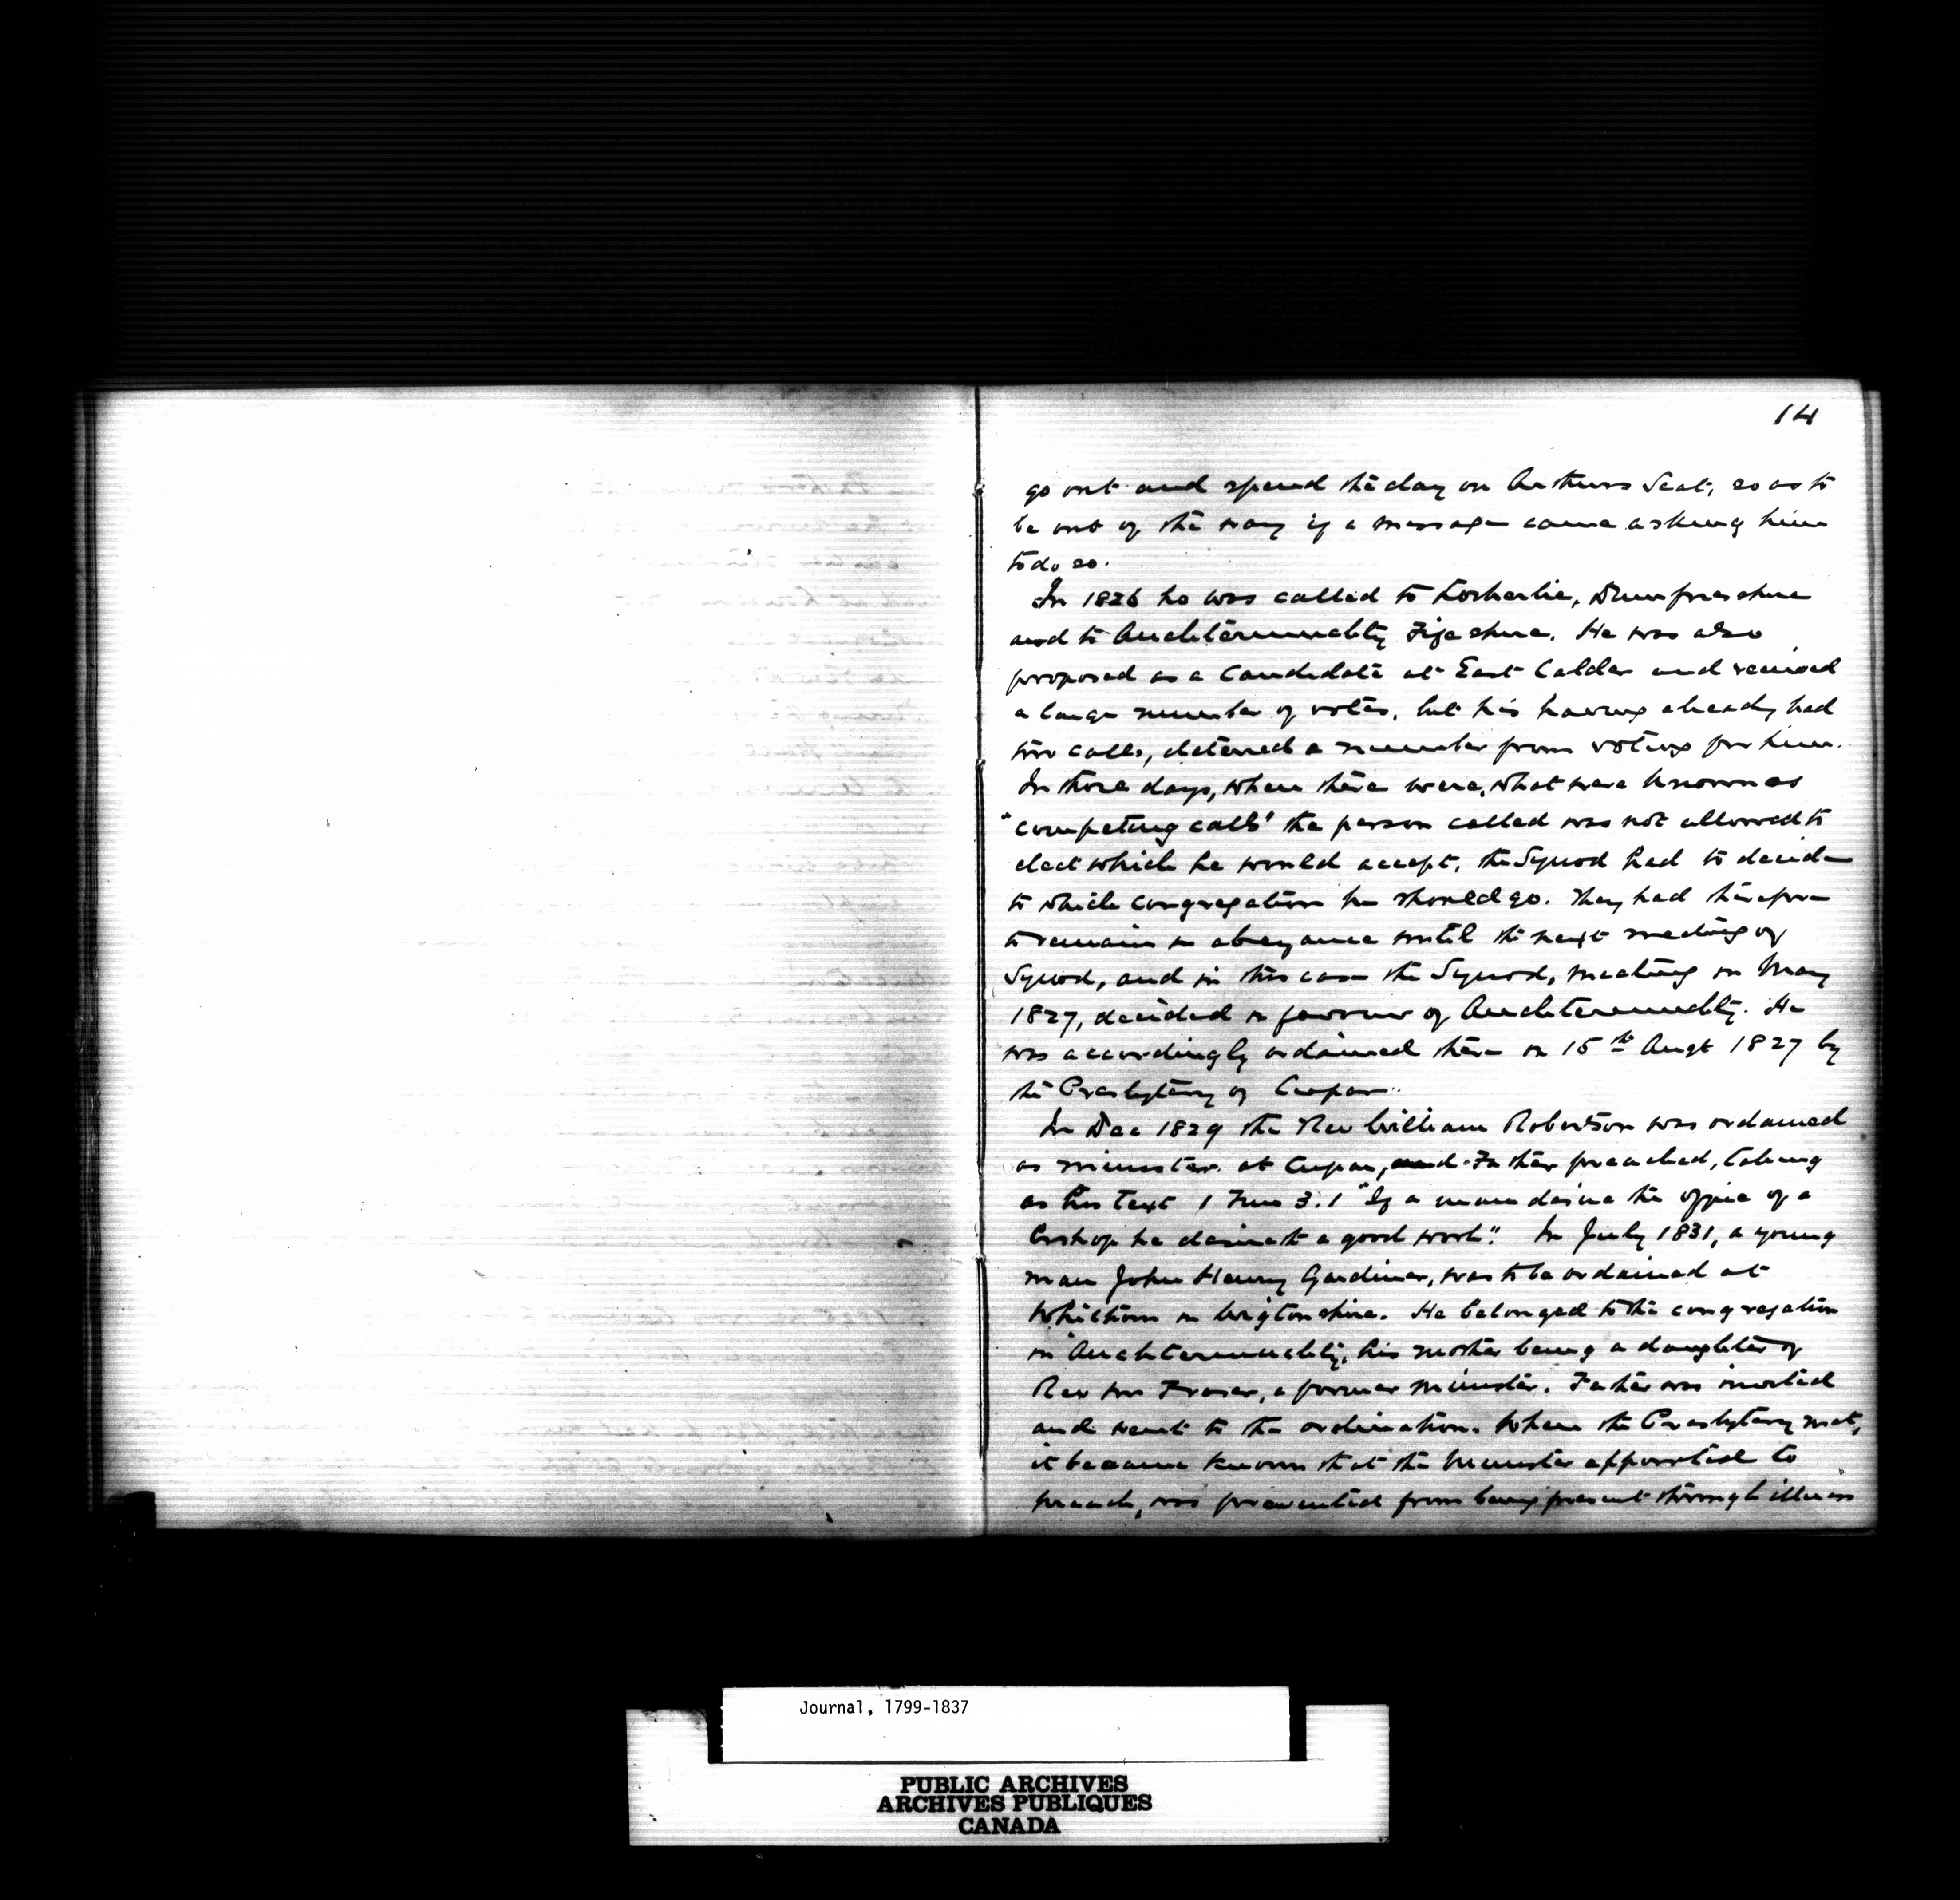 14
go out and spend the day on Arthurs Seat, so as to
be out of the way if a message came asking him
to do so.
In 1826 he was called to Lockerbie, Dumfriesshire
and to Auchtermuchty Fifeshire. He was also
proposed as a Candidate at East Calder and received
a large number of votes, but his having already had
two calls, deterred a number from voting for him.
In those days, when there were, what were known as
"competing calls" the person called was not allowed to
elect which he would accept, the Synod had to decide
to which congregation he should go. They had therefore
to remain in abeyance until the next meeting of
Synod, and in this case the Synod, meeting in May
1827, decided in favour of Auchtermuchty. He
was accordingly ordained there on 15th Augt 1827 by
the Presbytery of Cupar.
In Dec 1829 the Rev William Robertson was ordained
as minister at Cupar, and Father preached, taking
as his Text 1 Tim 3.1 "If a man desire the office of a
Bishop he desireth a good work". In July 1831, a young
man John Henry Gardiner, was to be ordained at
Whithorn in Wigtonshire. He belonged to the congregation
in Auchtermuchty, his mother being a daughter of
Rev Wm Fraser, a former minister. Father was invited
and went to the ordination. When the Presbytery met,
it became known that the Minister appointed to
preach, was prevented from being present through illness
Journal, 1799-1837
PUBLIC ARCHIVES
ARCHIVES PUBLIQUES
CANADA